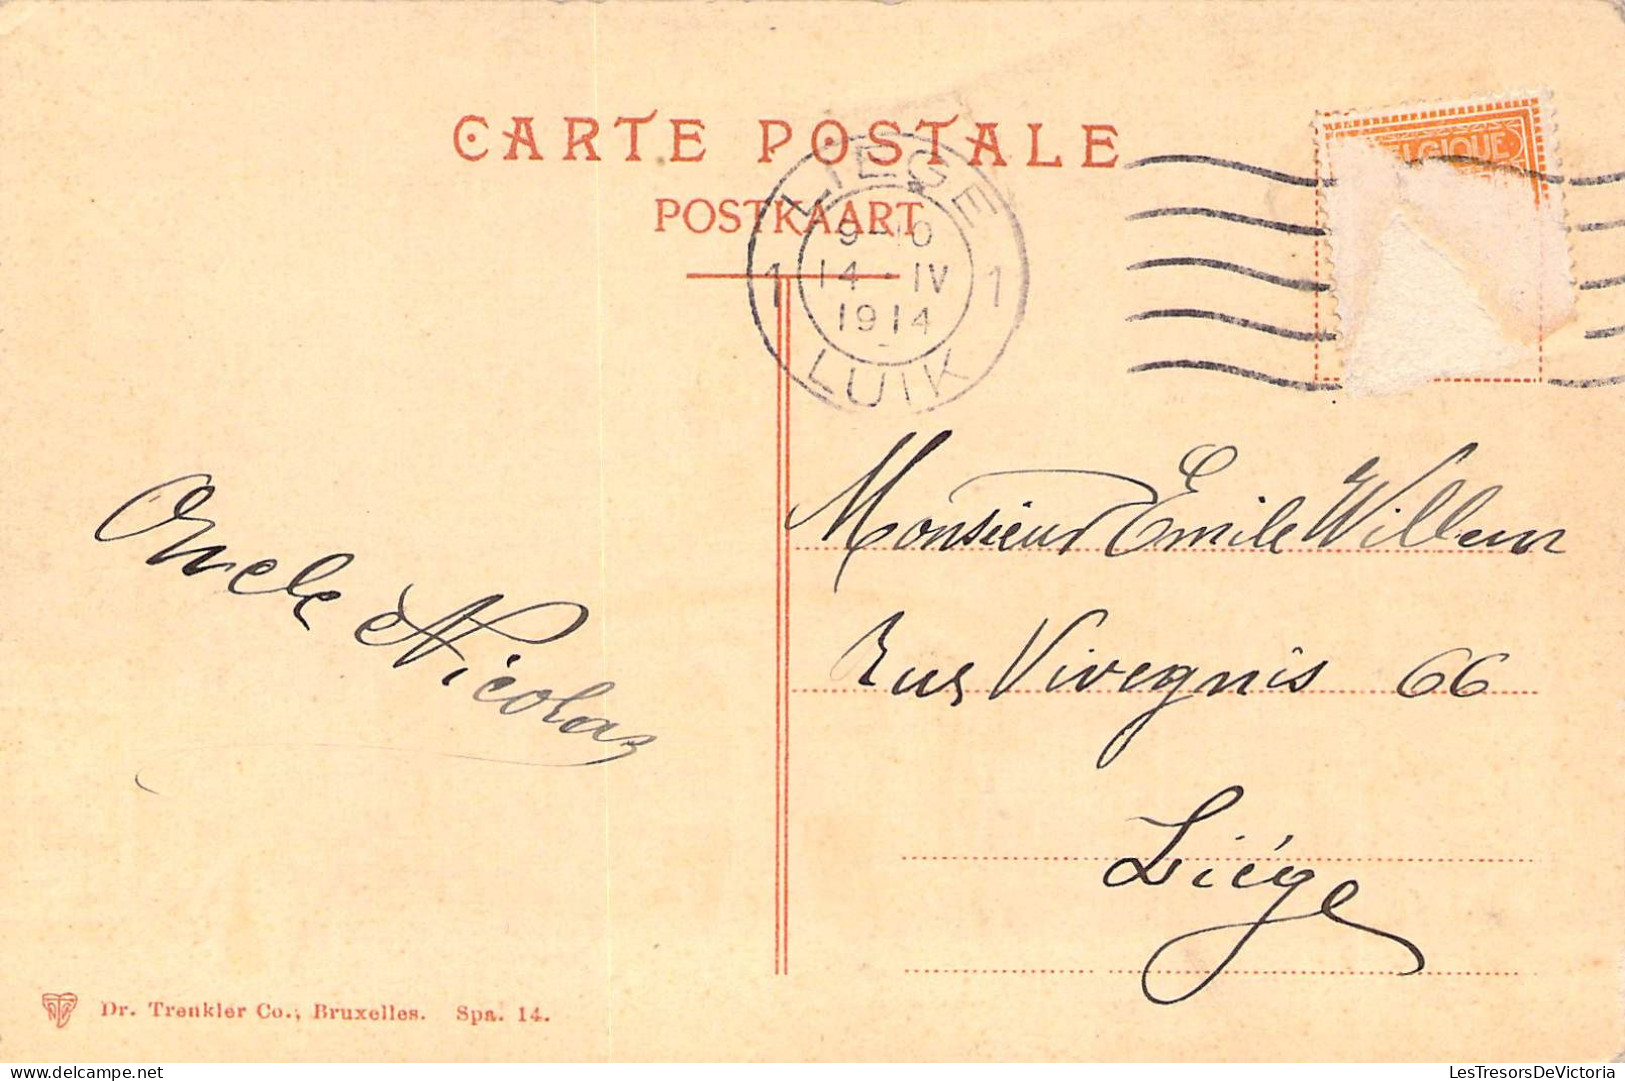 CARTE POSTALE
POSTKAART
LIEGE
9-10
14-IV
1914
1 1
LUIK
BELGIQUE
Oncle Nicolas
Monsieur Emile Willem
Rue Vivegnis 66
Liége
Dr. Trenkler Co., Bruxelles. Spa. 14.
LesTresorsDeVictoria